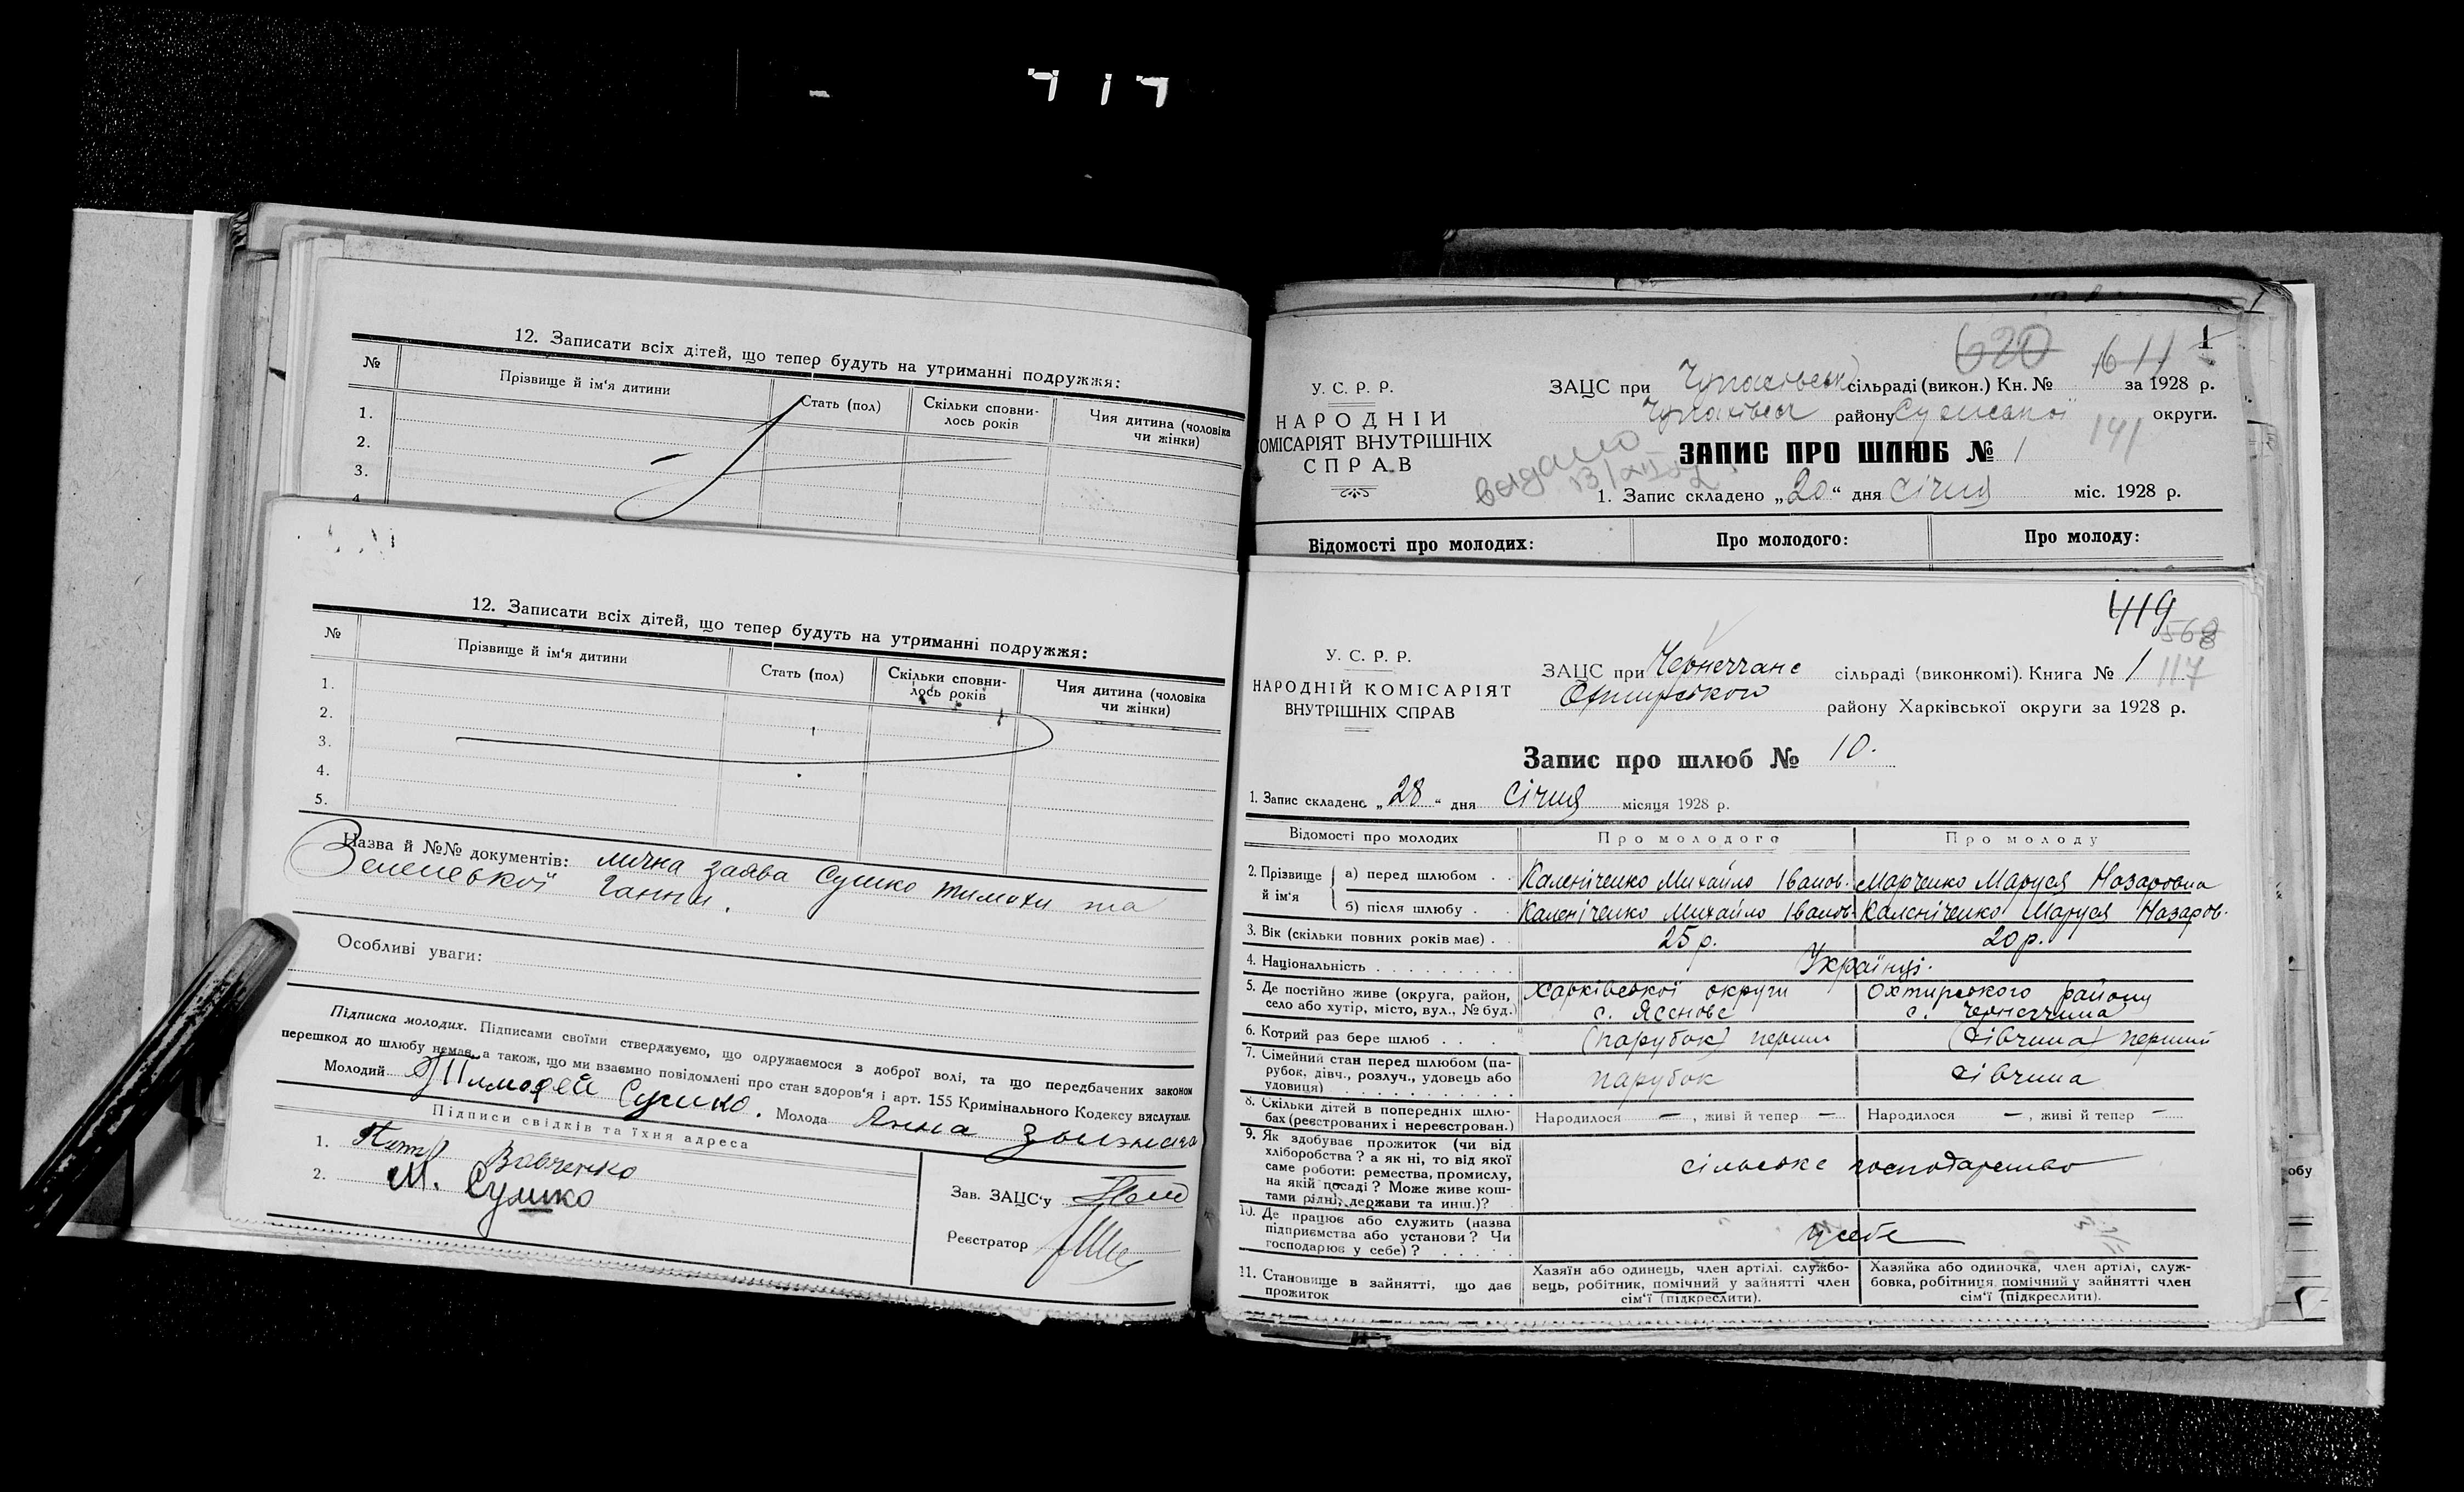 12. Записати всіх дітей, що тепер будуть на утриманні подружжя:
№ Прізвище й ім'я дитини Стать (пол) Скільки сповнилось років Чия дитина (чоловіка чи жінки)
1.
2.
3.
4.
12. Записати всіх дітей, що тепер будуть на утриманні подружжя:
№ Прізвище й ім'я дитини Стать (пол) Скільки сповнилось років Чия дитина (чоловіка чи жінки)
1.
2.
3.
4.
5.
Назва й №№ документів: лична заява Сушко Тимохи та
Ганни.
Особливі уваги:
Підписка молодих. Підписами своїми стверджуємо, що одружаємося з доброї волі, та що передбачених законом
перешкод до шлюбу немає, а також, що ми взаємно повідомлені про стан здоров'я і арт. 155 Кримінального Кодексу вислухали.
Молодий Тимофей Сушко. Молода Анна
Підписи свідків та їхня адреса
1. Петр Вовченко
2. М. Сушко
Зав. ЗАЦС'у
Реєстратор
У. С. Р. Р.
НАРОДНІЙ
КОМІСАРІЯТ ВНУТРІШНІХ
СПРАВ
620 611 1
ЗАЦС при Чупахівськ сільраді (викон.) Кн. № за 1928 р.
Чупахівськ району Сумської округи.
141
видано
ЗАПИС ПРО ШЛЮБ № 1
1. Запис складено „20“ дня січня міс. 1928 р.
Відомості про молодих: Про молодого: Про молоду:
419
568
117
У. С. Р. Р.
НАРОДНІЙ КОМІСАРІЯТ
ВНУТРІШНІХ СПРАВ
ЗАЦС при Чернеччане сільраді (виконкомі). Книга № 1
Охтирського району Харківської округи за 1928 р.
Запис про шлюб № 10.
1. Запис складено „28“ дня січня місяця 1928 р.
Відомості про молодих Про молодого Про молоду
2. Прізвище й ім'я
а) перед шлюбом . . Каленіченко Михайло Іванов. Марченко Маруся Назаровна
б) після шлюбу . . Каленіченко Михайло Іванов. Каленіченко Маруся Назаров.
3. Вік (скільки повних років має) . . 25 р. 20 р.
4. Національність . . . . . . . . . Українці.
5. Де постійно живе (округа, район, Харківської округи Охтирського району
село або хутір, місто, вул., № буд.) с. Ясенове с. Чернеччина
6. Котрий раз бере шлюб . . . (парубок) перший (дівчина) перший
7. Сімейний стан перед шлюбом (парубок, дівч., розлуч., удовець або удовиця) . . . парубок дівчина
8. Скільки дітей в попередніх шлюбах (реєстрованих і нереєстрован.) Народилося — , живі й тепер — Народилося — , живі й тепер —
9. Як здобуває прожиток (чи від
хліборобства? а як ні, то від якої
саме роботи: ремества, промислу,
на якій посаді? Може живе коштами рідні, держави та инш.)? сільське господарство
10. Де працює або служить (назва
підприємства або установи? Чи
господарює у себе)? . . . . . у себе
11. Становище в зайнятті, що дає прожиток
Хазяїн або одинець, член артілі. службовець, робітник, помічний у зайнятті член сім'ї (підкреслити).
Хазяйка або одиночка, член артілі, службовка, робітниця, помічний у зайнятті член сім'ї (підкреслити).